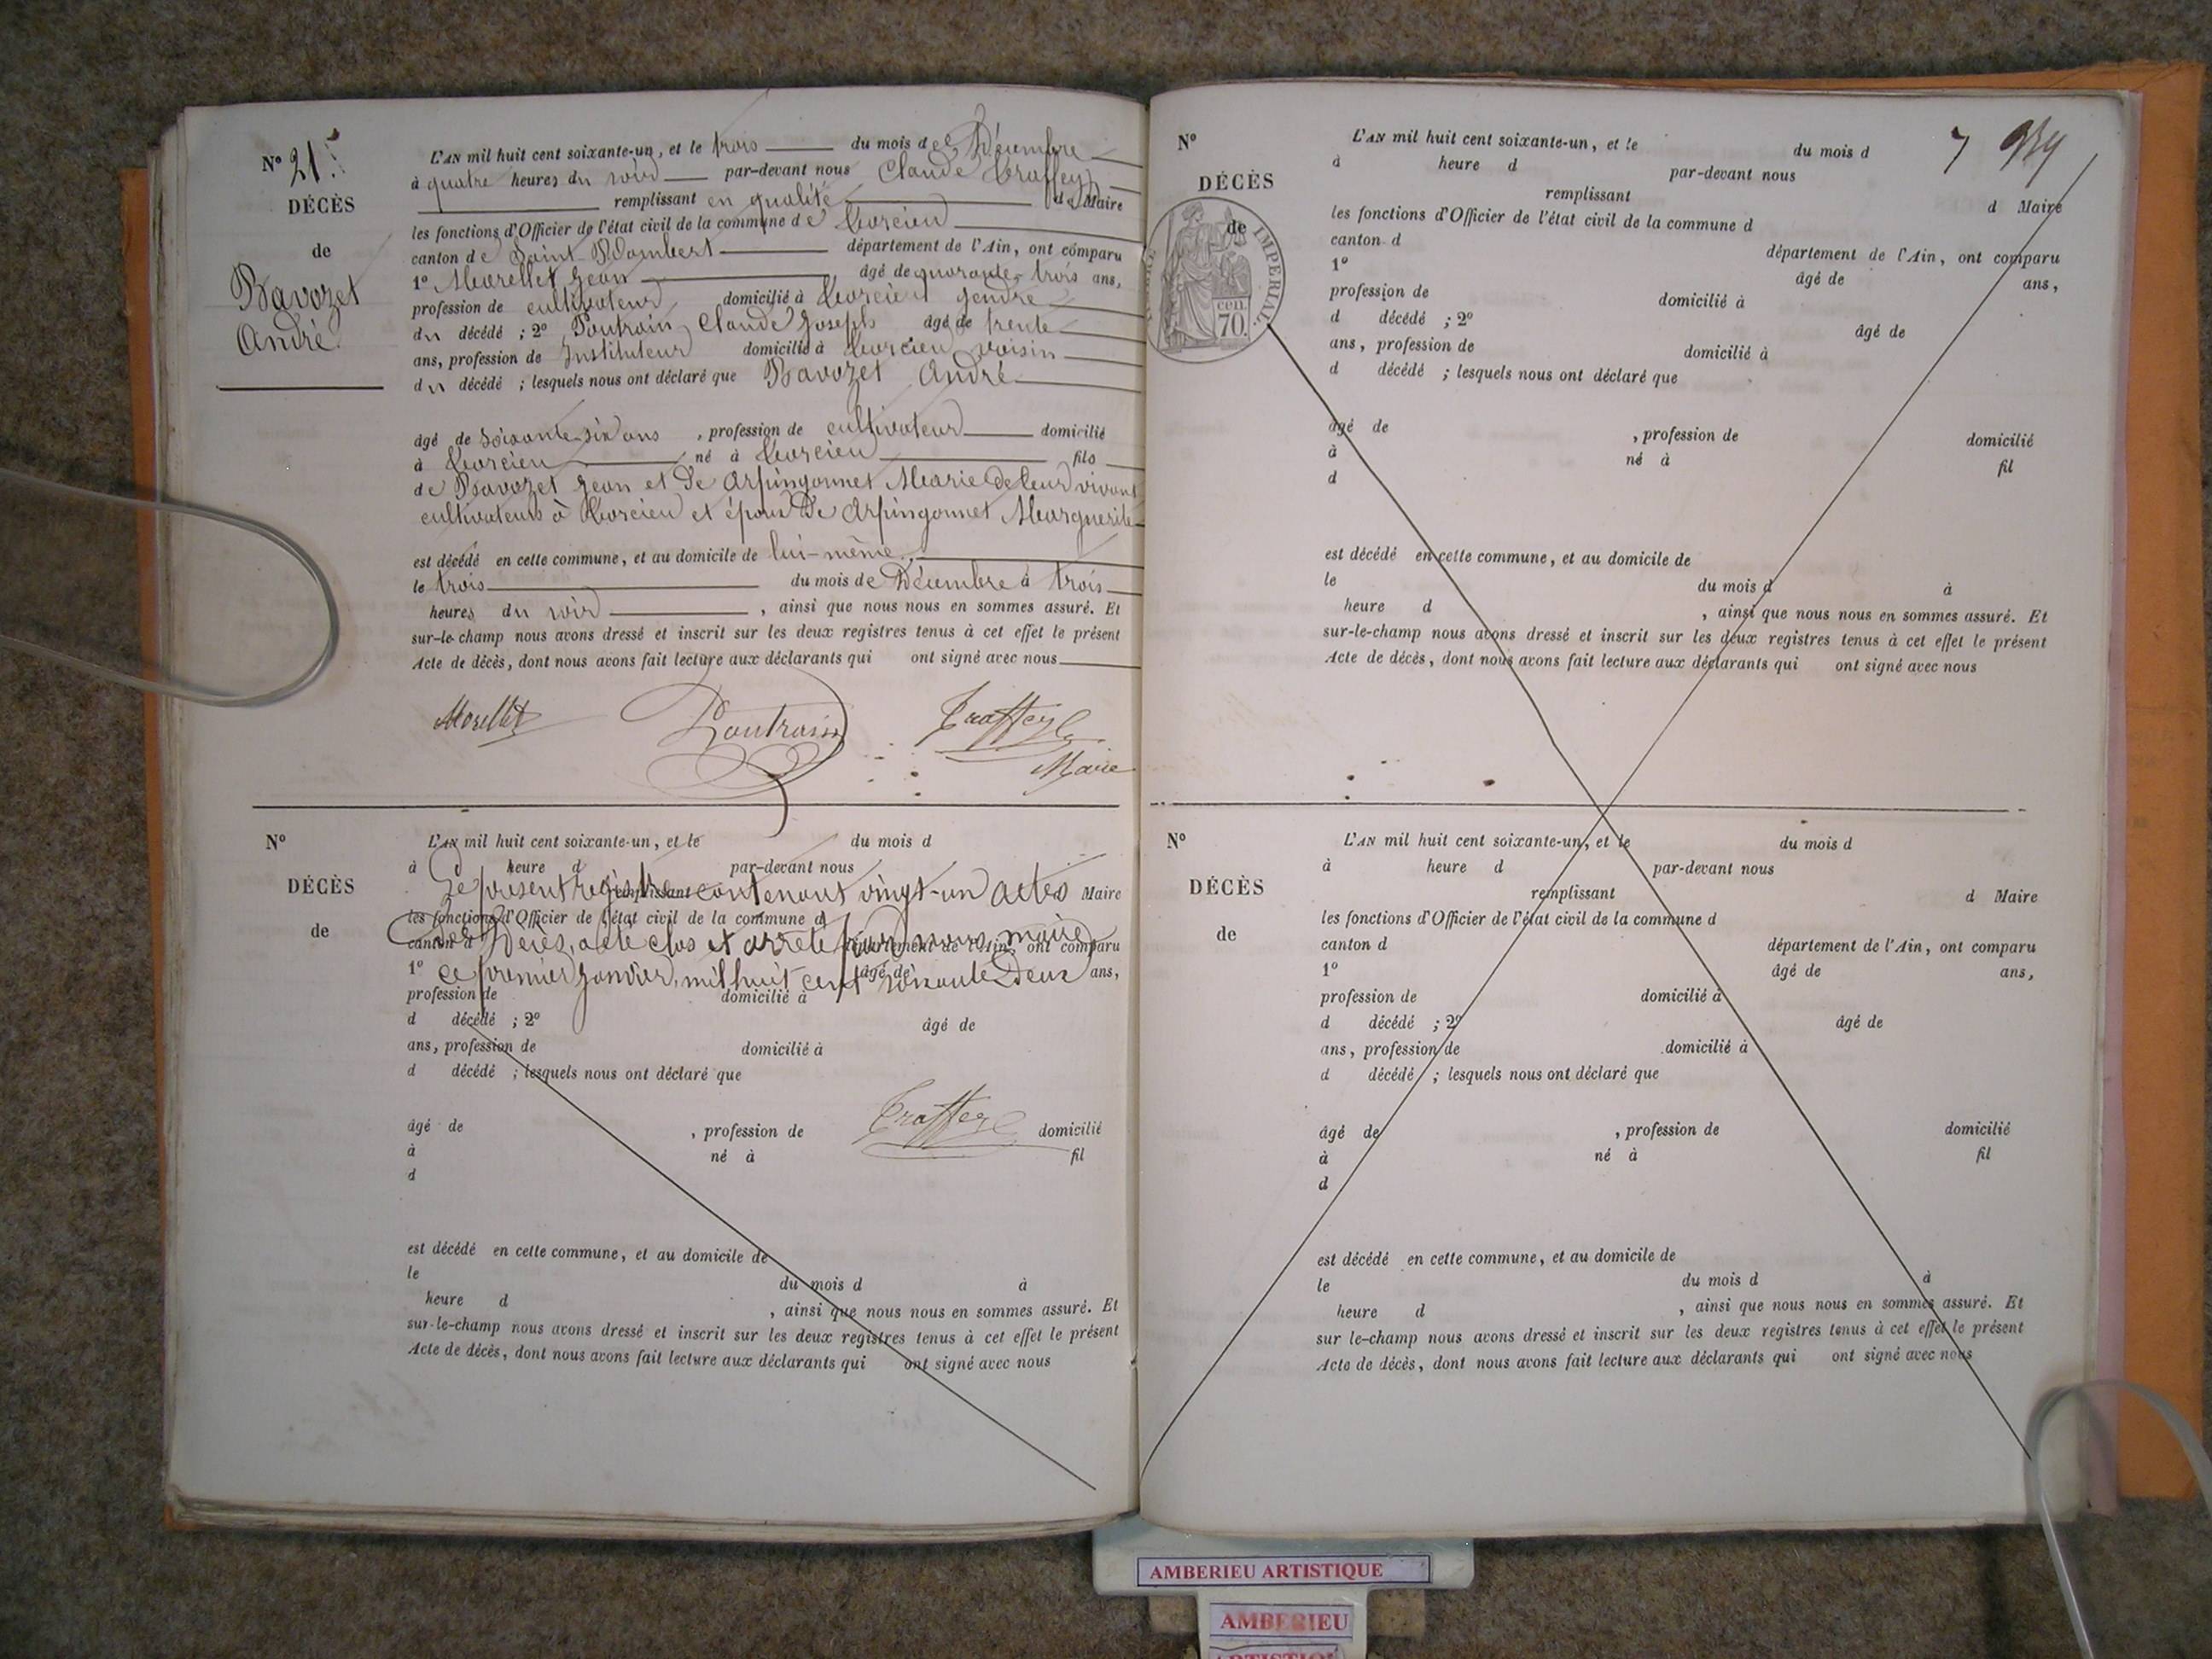 N° 21.
DÉCÈS
de
Bavozet
André
L'AN mil huit cent soixante-un, et le trois du mois de Décembre
à quatre heures du soir par-devant nous Claude Traffey
remplissant en qualité de Maire
les fonctions d'Officier de l'état civil de la commune de Torcieu
canton de Saint Rambert département de l'Ain, ont comparu
1° Morellet Jean âgé de quarante trois ans,
profession de cultivateur domicilié à Torcieu gendre
du décédé ; 2° Poutrain Claude Joseph âgé de trente
ans, profession de Instituteur domicilié à Torcieu voisin
du décédé ; lesquels nous ont déclaré que Bavozet André
âgé de soixante-six ans , profession de cultivateur domicilié
à Torcieu né à Torcieu fils
de Bavozet Jean et de Arpingonnet Marie de leur vivant
cultivateurs à Torcieu et époux de Arpingonnet Marguerite
est décédé en cette commune, et au domicile de lui-même,
le trois du mois de Décembre à trois
heures du soir , ainsi que nous nous en sommes assuré. Et
sur-le-champ nous avons dressé et inscrit sur les deux registres tenus à cet effet le présent
Acte de décès, dont nous avons fait lecture aux déclarants qui ont signé avec nous
Morellet Poutrain Traffey
Maire
N°
DÉCÈS
de
L'AN mil huit cent soixante-un, et le du mois d
à heure d par-devant nous
Le présent registre contenant vingt-un actes
remplissant Maire
les fonctions d'Officier de l'état civil de la commune d
de Décès, a été clos et arrêté par nous, maire,
canton d département de l'Ain, ont comparu
ce premier Janvier, mil huit cent soixante Deux
1° âgé de ans,
profession de domicilié à
d décédé ; 2° âgé de
ans, profession de domicilié à
d décédé ; lesquels nous ont déclaré que
Traffey
âgé de , profession de domicilié
à né à fil
d
est décédé en cette commune, et au domicile de
le du mois d à
heure d , ainsi que nous nous en sommes assuré. Et
sur-le-champ nous avons dressé et inscrit sur les deux registres tenus à cet effet le présent
Acte de décès, dont nous avons fait lecture aux déclarants qui ont signé avec nous
N°
DÉCÈS
de
IMPERIAL
cen.
70.
7
L'AN mil huit cent soixante-un, et le du mois d
à heure d par-devant nous
remplissant d Maire
les fonctions d'Officier de l'état civil de la commune d
canton d département de l'Ain, ont comparu
1° âgé de ans,
profession de domicilié à
d décédé ; 2° âgé de
ans, profession de domicilié à
d décédé ; lesquels nous ont déclaré que
âgé de , profession de domicilié
à né à fil
d
est décédé en cette commune, et au domicile de
le du mois d à
heure d , ainsi que nous nous en sommes assuré. Et
sur-le-champ nous avons dressé et inscrit sur les deux registres tenus à cet effet le présent
Acte de décès, dont nous avons fait lecture aux déclarants qui ont signé avec nous
N°
DÉCÈS
de
L'AN mil huit cent soixante-un, et le du mois d
à heure d par-devant nous
remplissant d Maire
les fonctions d'Officier de l'état civil de la commune d
canton d département de l'Ain, ont comparu
1° âgé de ans,
profession de domicilié à
d décédé ; 2° âgé de
ans, profession de domicilié à
d décédé ; lesquels nous ont déclaré que
âgé de , profession de domicilié
à né à fil
d
est décédé en cette commune, et au domicile de
le du mois d à
heure d , ainsi que nous nous en sommes assuré. Et
sur le-champ nous avons dressé et inscrit sur les deux registres tenus à cet effet le présent
Acte de décès, dont nous avons fait lecture aux déclarants qui ont signé avec nous
AMBERIEU ARTISTIQUE
AMBERIEU